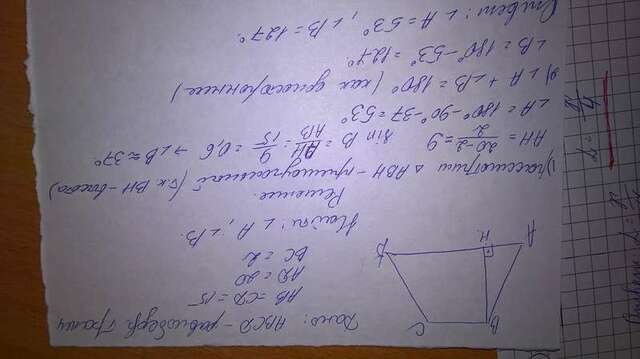 Дано: ABCD - равнобедр. трапец
AB = CD = 15
AD = 20
BC = 2
Найти: ∠A, ∠B.
B C
A H D
Решение.
1) рассмотрим △ABH - прямоугольный (т.к. BH - высота)
AH = 20-2/2 = 9 sin B = AH/AB = 9/15 = 0,6 → ∠B ≈ 37°
∠A = 180° - 90° - 37 = 53°
2) ∠A + ∠B = 180° (как односторонние)
∠B = 180° - 53° = 127°.
Ответ: ∠A = 53°, ∠B = 127°.